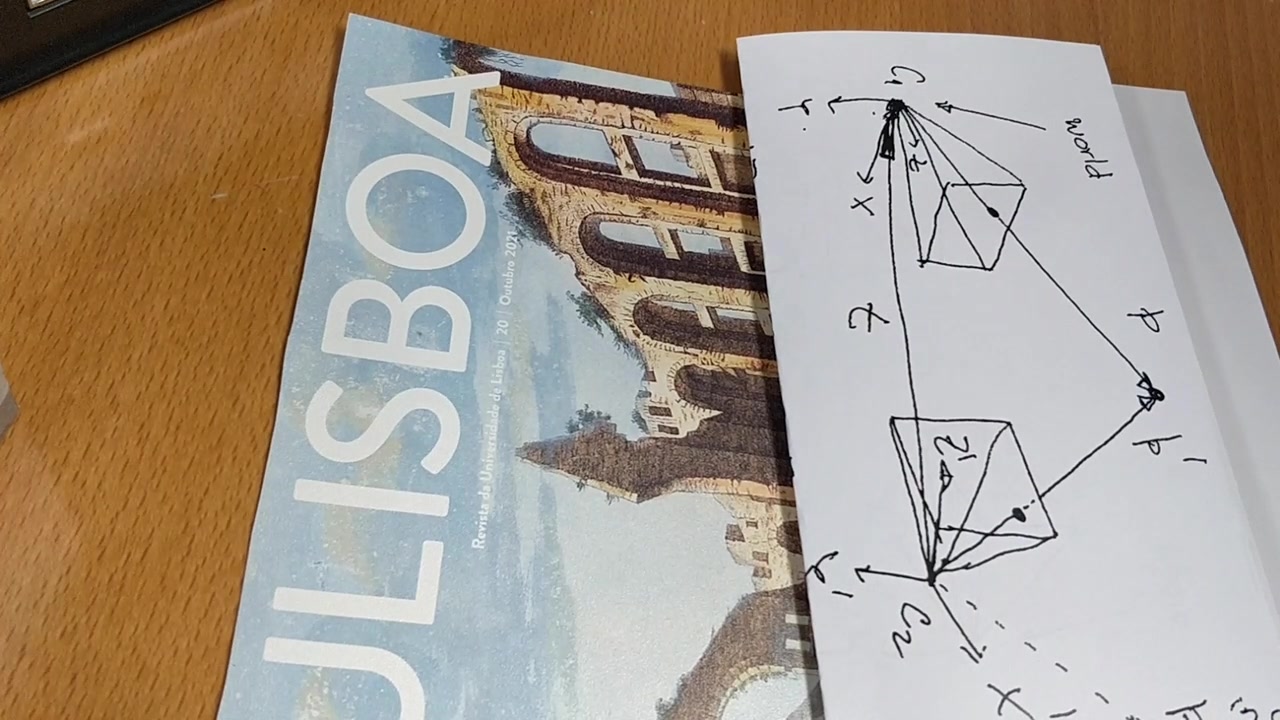 ULISBOA
Revista da Universidade de Lisboa | 20 | Outubro 2021
C1
world
Y
X
Z
P
P'
Z'
Y'
C2
X'